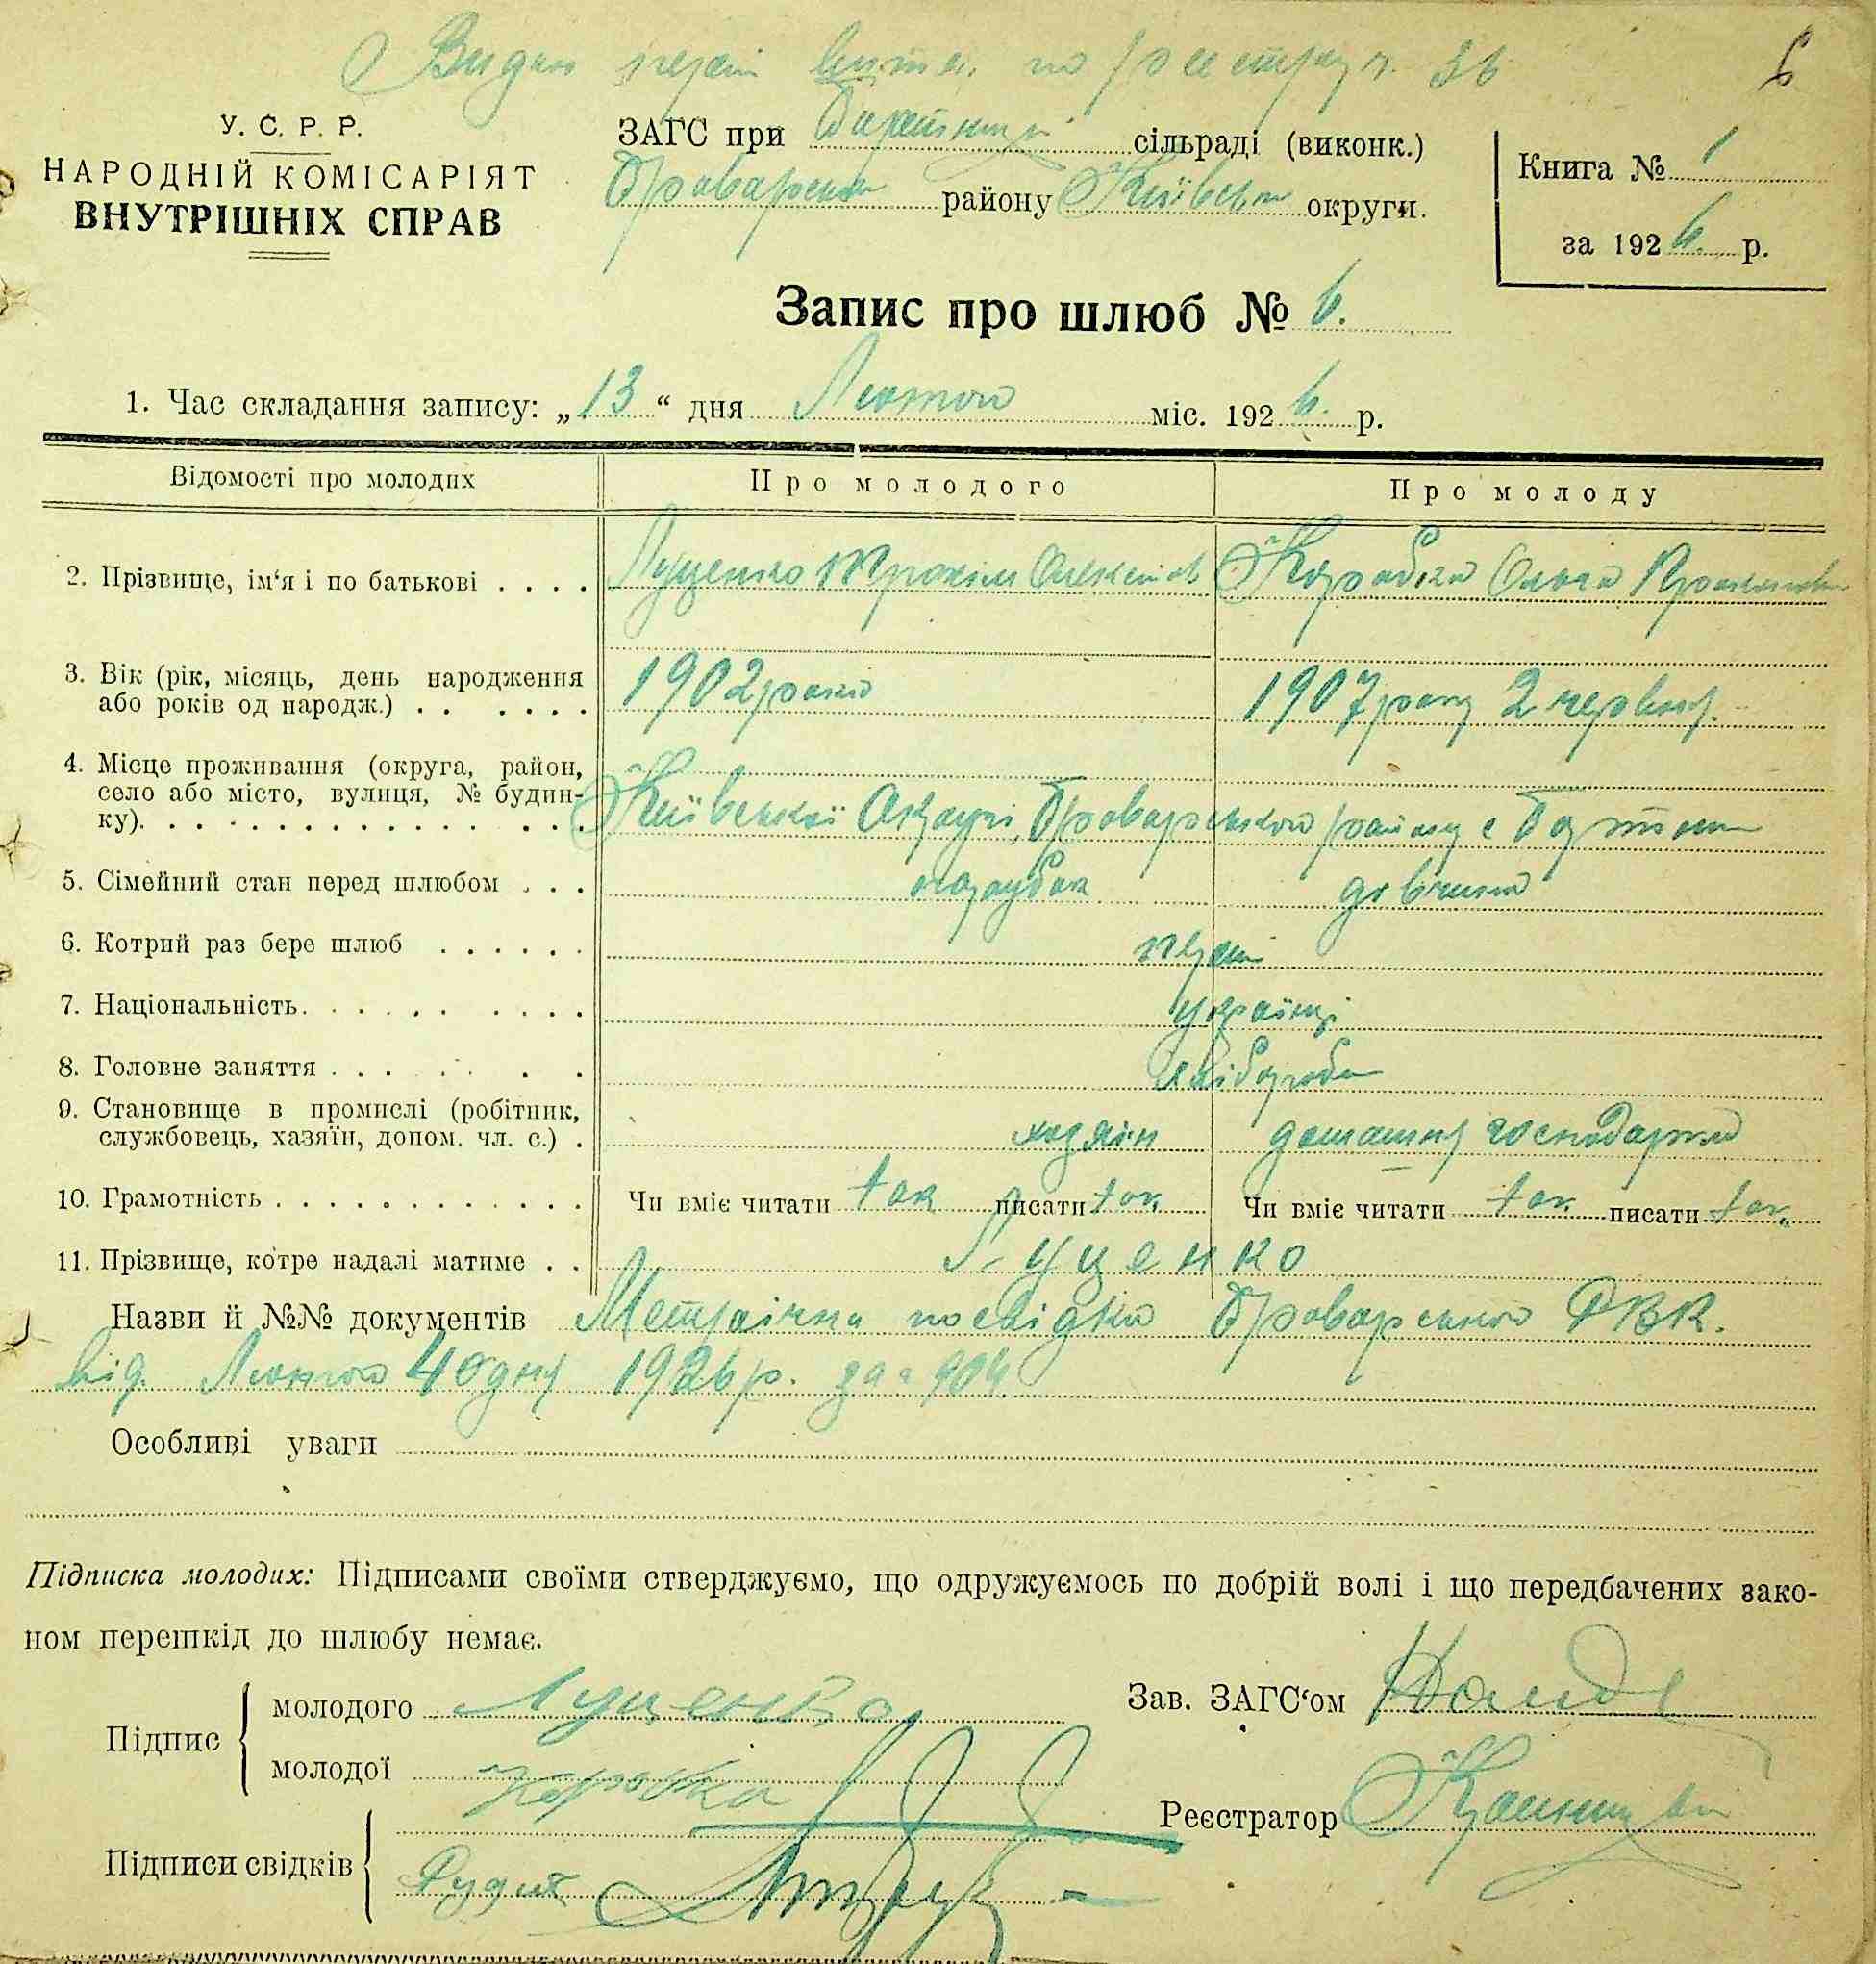 Видан по реєстру 36
6
У. С. Р. Р.
НАРОДНІЙ КОМІСАРІЯТ
ВНУТРІШНІХ СПРАВ
ЗАГС при сільраді (виконк.)
Броварського району Київської округи.
Книга № 1
за 1926 р.
Запис про шлюб № 6.
1. Час складання запису: „13“ дня Лютого міс. 1926. р.
Відомості про молодих
Про молодого
Про молоду
2. Прізвище, ім‘я і по батькові . . . . Луценко Трохім Олексіїв
Коробка Ольга
3. Вік (рік, місяць, день народження
або років од народж.) . . . . . . 1902 року
1907 року 2 червня.
4. Місце проживання (округа, район,
село або місто, вулиця, № будин-
ку). . . . Київської Округи, Броварського району с
5. Сімейний стан перед шлюбом . . . парубок дівчина
6. Котрий раз бере шлюб . . . . . . перший
7. Національність. . . . . . . . . українці
8. Головне заняття . . . . . . . хлібороби
9. Становище в промислі (робітник,
службовець, хазяїн, допом. чл. с.) . хазяїн домашня господарка
10. Грамотність . . . . . . . . . . . . . Чи вміє читати так писати так Чи вміє читати так писати так
11. Прізвище, котре надалі матиме . . Луценко
Назви й №№ документів Метрична посвідка Броварського РВК.
від Лютого 4 дня 1926 р. за № 904
Особливі уваги
Підписка молодих: Підписами своїми стверджуємо, що одружуємось по добрій волі і що передбачених зако-
ном перешкід до шлюбу немає.
Підпис
молодого Луценко
молодої коробка
Зав. ЗАГС‘ом
Реєстратор
Підписи свідків